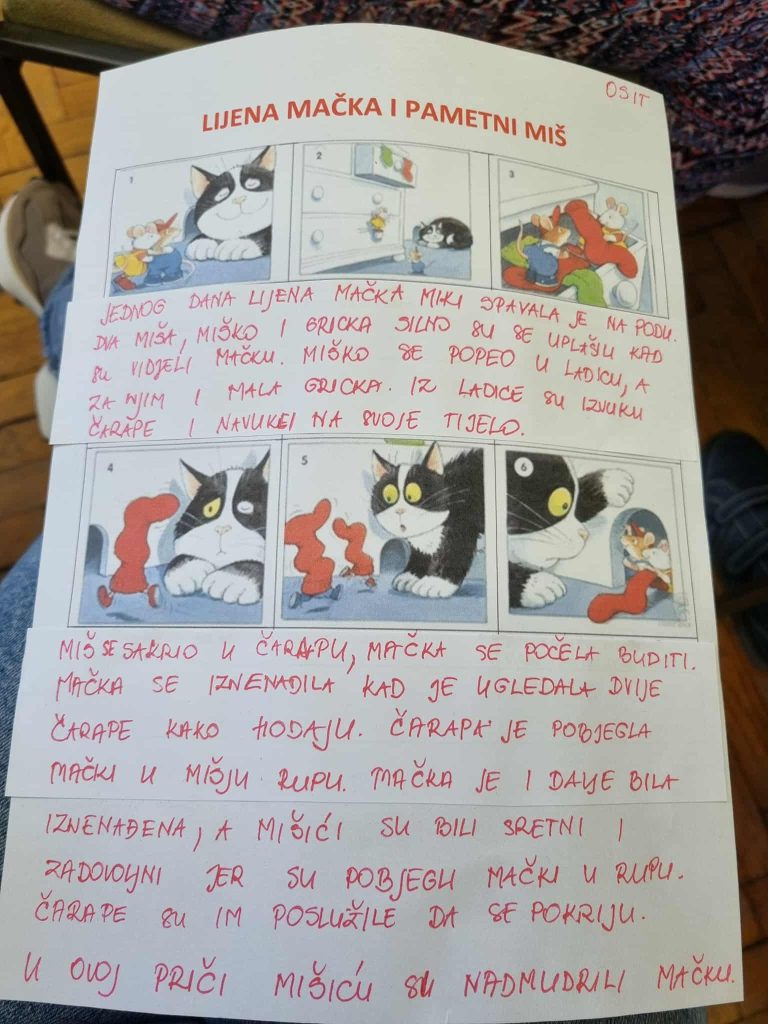 OSIT
LIJENA MAČKA I PAMETNI MIŠ
1
2
3
JEDNOG DANA LIJENA MAČKA MIKI SPAVALA JE NA PODU.
DVA MIŠA, MIŠKO I GRICKA SILNO SU SE UPLAŠILI KAD
SU VIDJELI MAČKU. MIŠKO SE POPEO U LADICU, A
ZA NJIM I MALA GRICKA. IZ LADICE SU IZVUKLI
ČARAPE I NAVUKLI NA SVOJE TIJELO.
4
5
6
MIŠ SE SAKRIO U ČARAPU, MAČKA SE POČELA BUDITI.
MAČKA SE IZNENADILA KAD JE UGLEDALA DVIJE
ČARAPE KAKO HODAJU. ČARAPA JE POBJEGLA
MAČKI U MIŠJU RUPU. MAČKA JE I DALJE BILA
IZNENAĐENA, A MIŠIĆI SU BILI SRETNI I
ZADOVOLJNI JER SU POBJEGLI MAČKI U RUPU.
ČARAPE SU IM POSLUŽILE DA SE POKRIJU.
U OVOJ PRIČI MIŠIĆI SU NADMUDRILI MAČKU.